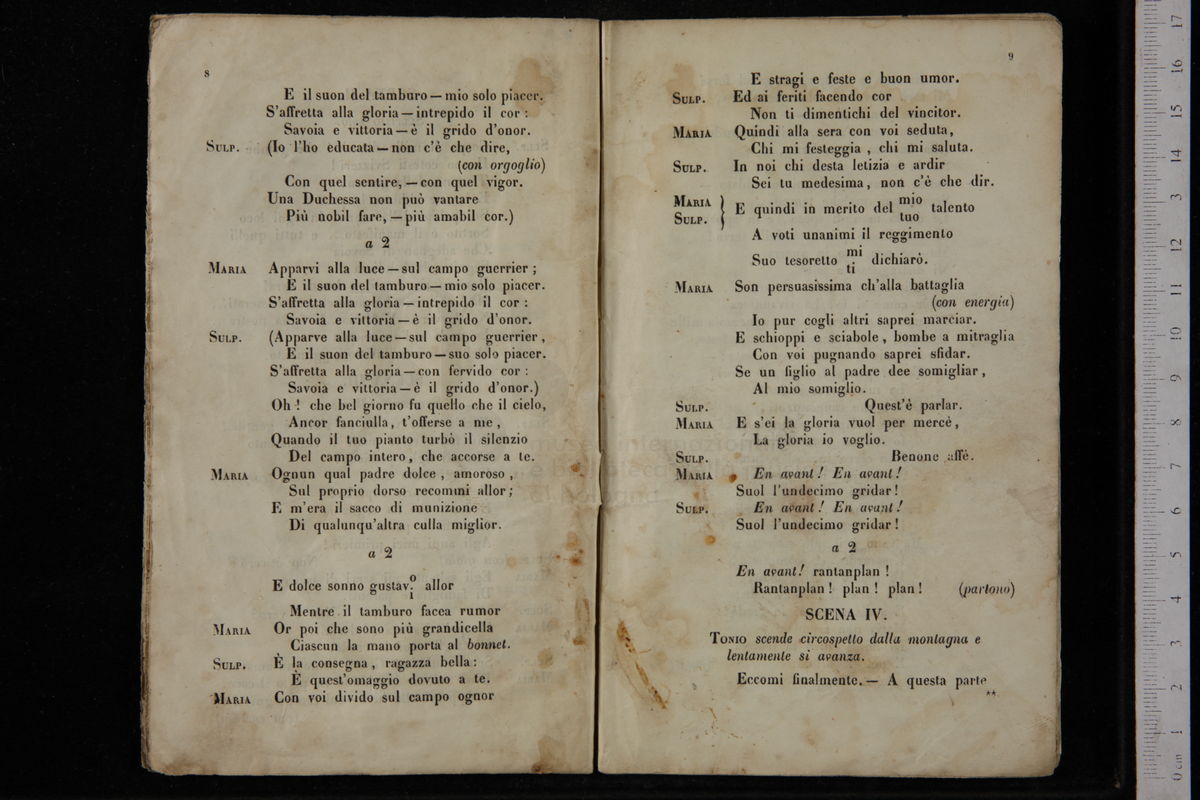 8
E il suon del tamburo — mio solo piacer.
S'affretta alla gloria — intrepido il cor :
Savoia e vittoria — è il grido d'onor.
SULP. (Io l'ho educata — non c'è che dire,
(con orgoglio)
Con quel sentire, — con quel vigor.
Una Duchessa non può vantare
Più nobil fare, — più amabil cor.)
a 2
MARIA Apparvi alla luce — sul campo guerrier ;
E il suon del tamburo — mio solo piacer.
S'affretta alla gloria — intrepido il cor :
Savoia e vittoria — è il grido d'onor.
SULP. (Apparve alla luce — sul campo guerrier,
E il suon del tamburo — suo solo piacer.
S'affretta alla gloria — con fervido cor :
Savoia e vittoria — è il grido d'onor.)
Oh ! che bel giorno fu quello che il cielo,
Ancor fanciulla, t'offerse a me,
Quando il tuo pianto turbò il silenzio
Del campo intero, che accorse a te.
MARIA Ognun qual padre dolce, amoroso,
Sul proprio dorso recommi allor;
E m'era il sacco di munizione
Di qualunqu'altra culla miglior.
a 2
E dolce sonno gustav o i allor
Mentre il tamburo facea rumor
MARIA Or poi che sono più grandicella
Ciascun la mano porta al bonnet.
SULP. È la consegna, ragazza bella:
È quest'omaggio dovuto a te.
MARIA Con voi divido sul campo ognor
9
E stragi e feste e buon umor.
SULP. Ed ai feriti facendo cor
Non ti dimentichi del vincitor.
MARIA Quindi alla sera con voi seduta,
Chi mi festeggia, chi mi saluta.
SULP. In noi chi desta letizia e ardir
Sei tu medesima, non c'è che dir.
MARIA SULP. } E quindi in merito del mio tuo talento
A voti unanimi il reggimento
Suo tesoretto mi ti dichiarò.
MARIA Son persuasissima ch'alla battaglia
(con energia)
Io pur cogli altri saprei marciar.
E schioppi e sciabole, bombe a mitraglia
Con voi pugnando saprei sfidar.
Se un figlio al padre dee somigliar,
Al mio somiglio.
SULP. Quest'è parlar.
MARIA E s'ei la gloria vuol per mercè,
La gloria io voglio.
SULP. Benone affé.
MARIA En avant ! En avant !
Suol l'undecimo gridar !
SULP. En avant ! En avant !
Suol l'undecimo gridar !
a 2
En avant! rantanplan !
Rantanplan ! plan ! plan ! (partono)
SCENA IV.
TONIO scende circospetto dalla montagna e
lentamente si avanza.
Eccomi finalmente. — A questa parte
**
0 cm 1 2 3 4 5 6 7 8 9 10 11 12 13 14 15 16 17